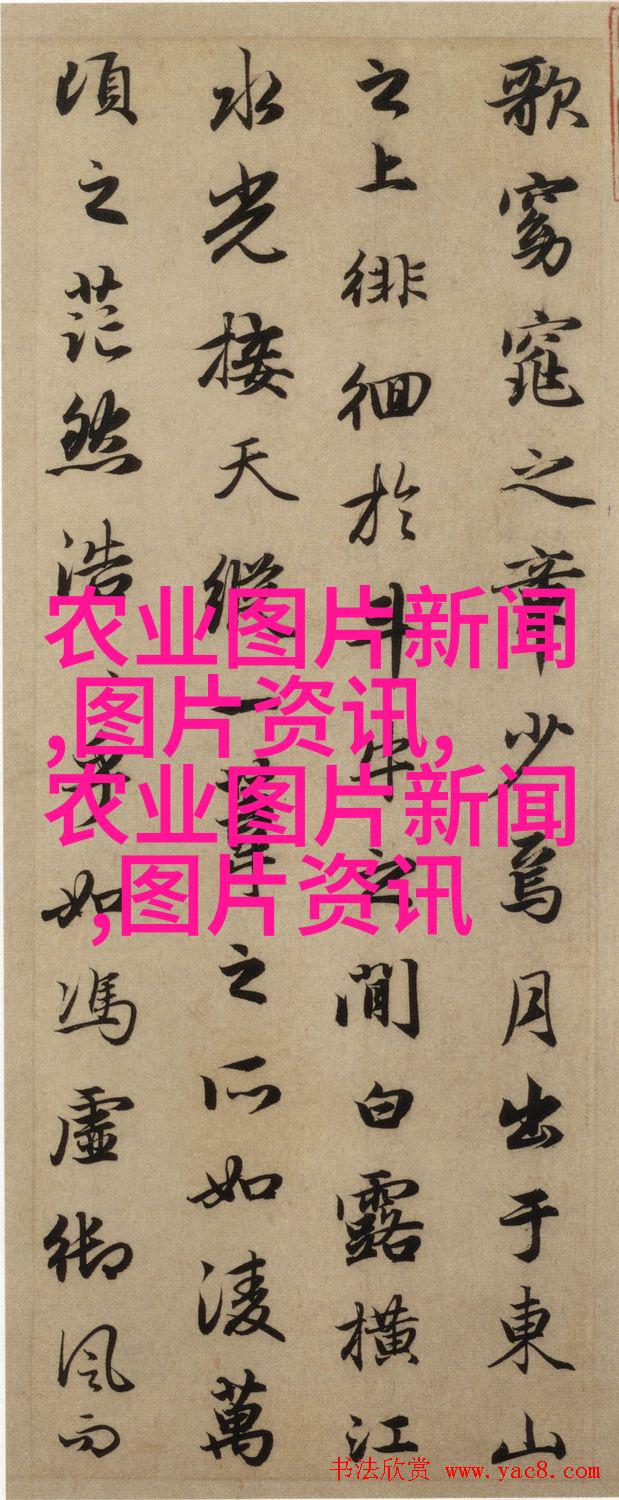 歌窈窕之章少焉月出于東山
之上徘徊於斗牛之間白露橫江
水光接天縱一葦之所如淩萬
頃之茫然浩乎如馮虛御風而
农业图片新闻
,图片资讯,
农业图片新闻
,图片资讯
书法欣赏 www.yac8.com